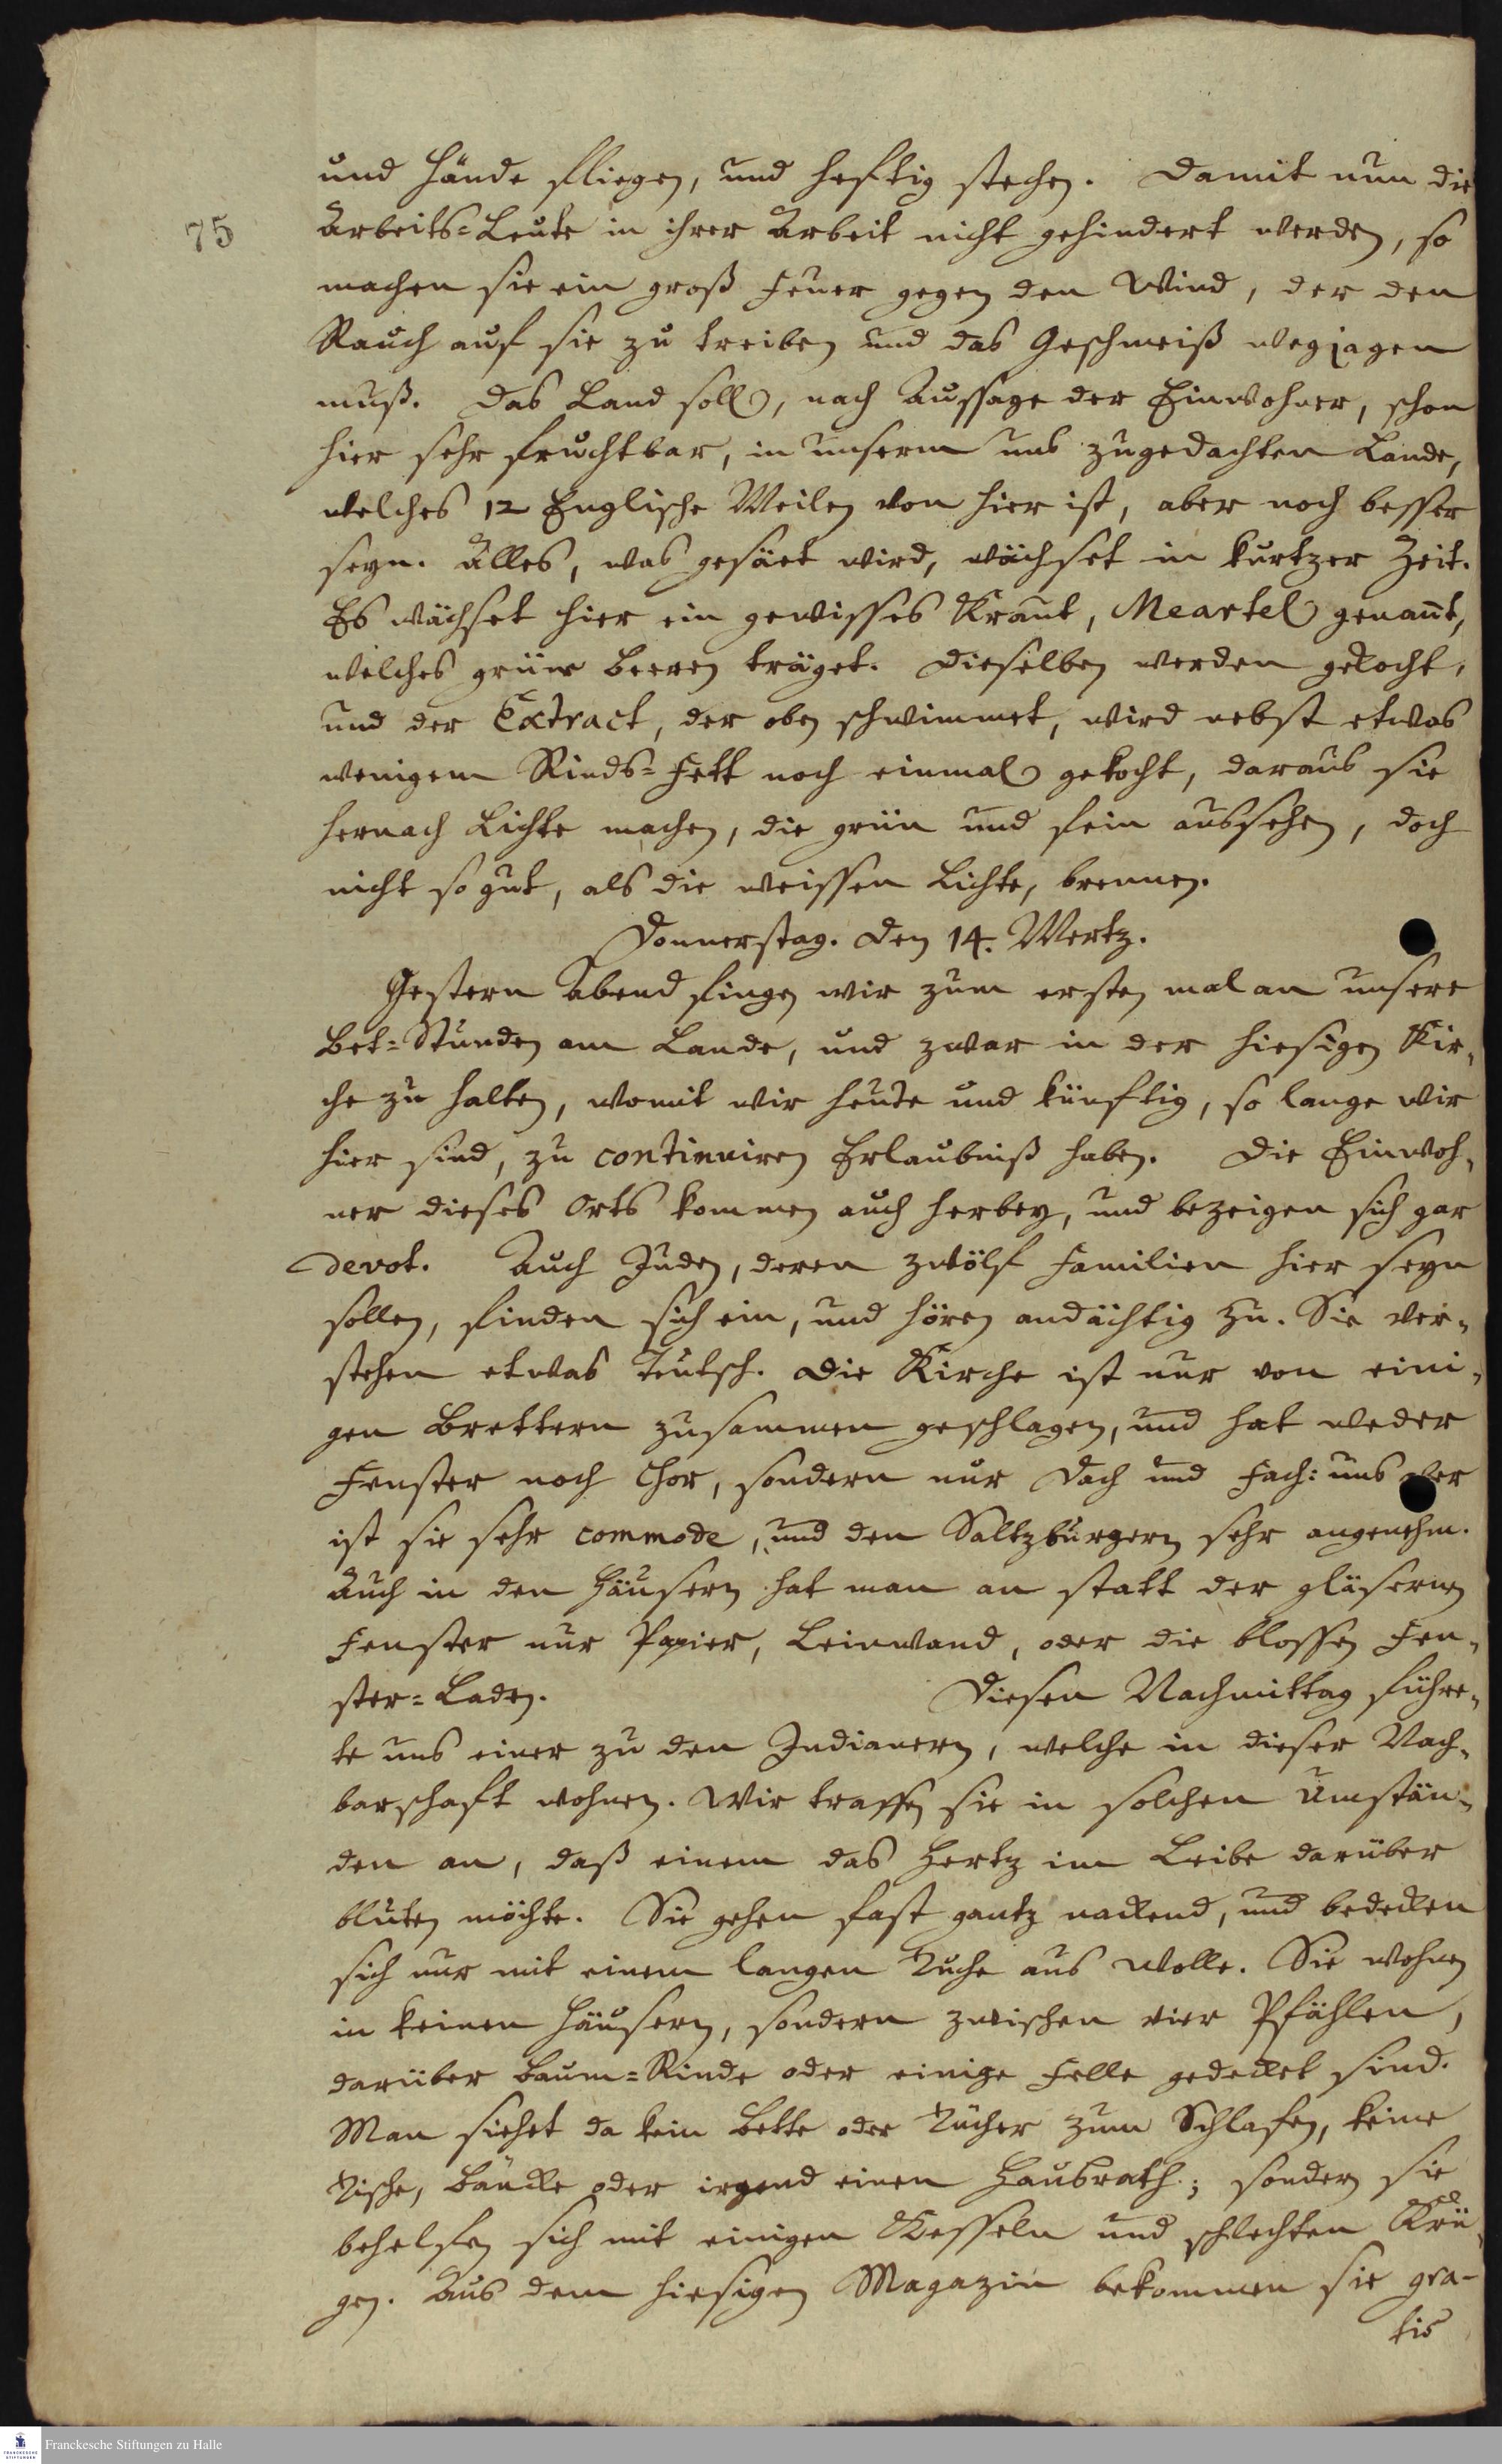 75
und Hände fliegen, und hefftig stechen. Damit nun die
Arbeits=Leute in ihrer Arbeit nicht gehindert werden, so
machen sie ein groß Feuer gegen den Wind, der den
Rauch auf sie zu treiben und das Geschmeiß wegjagen
muß. Das Land soll, nach Aussage der Einwohner, schon
hier sehr fruchtbar, in unserm uns zugedachten Lande,
welches 12 Englische Meilen von hier ist, aber noch besser
seyn. Alles, was gesäet wird, wächset in kurtzer Zeit.
Es wächset hier ein gewisses Kraut, Meartel genañt,
welches grüne Beeren träget. Dieselben werden gekocht,
und der Extract, der oben schwimmet, wird nebst etwas
wenigem Rinds=Fett noch einmal gekocht, daraus sie
hernach Lichte machen, die grün und fein aussehen, doch
nicht so gut, als die weissen Lichte, brennen.
Donnerstag. Den 14. Mertz.
Gestern Abend fingen wir zum ersten mal an unsere
Bet=Stunden am Lande, und zwar in der hiesigen Kir=
che zu halten, womit wir heute und künftig, so lange wir
hier sind, zu continuiren Erlaubniß haben. Die Einwoh=
ner dieses Orts kommen auch herbey, und bezeigen sich gar
devot. Auch Juden, deren zwölf Familien hier seyn
sollen, finden sich ein, und hören andächtig zu. Sie ver=
stehen etwas Teutsch. Die Kirche ist nur von eini=
gen Brettern zusammen geschlagen, und hat weder
Fenster noch Chor, sondern nur Dach und Fach: uns aber
ist sie sehr commode, und den Saltzburgern sehr angenehm.
Auch in den Häusern hat man an statt der gläsernen
Fenster nur Papier, Leinwand, oder die blossen Fen=
ster=Laden. Diesen Nachmittag führe=
te uns einer zu den Indianern, welche in dieser Nach=
barschaft wohnen. Wir traffen sie in solchen Umstän=
den an, daß einem das Hertz im Leibe darüber
bluten möchte. Sie gehen fast gantz nackend, und bedecken
sich nur mit einem langen Tuche aus Wolle. Sie wohnen
in keinen Häusern, sondern zwischen vier Pfählen,
darüber Baum=Rinde oder einige Felle gedecket sind.
Man siehet da kein Bette oder Tücher zum Schlafen, keine
Tische, Bäncke oder irgend einen Hausrath; sondern sie
behelfen sich mit einigen Kesseln und schlechten Krü=
gen. Aus dem hiesigen Magazin bekommen sie gra-
tis
FRANCKESCHE STIFTUNGEN
Franckesche Stiftungen zu Halle